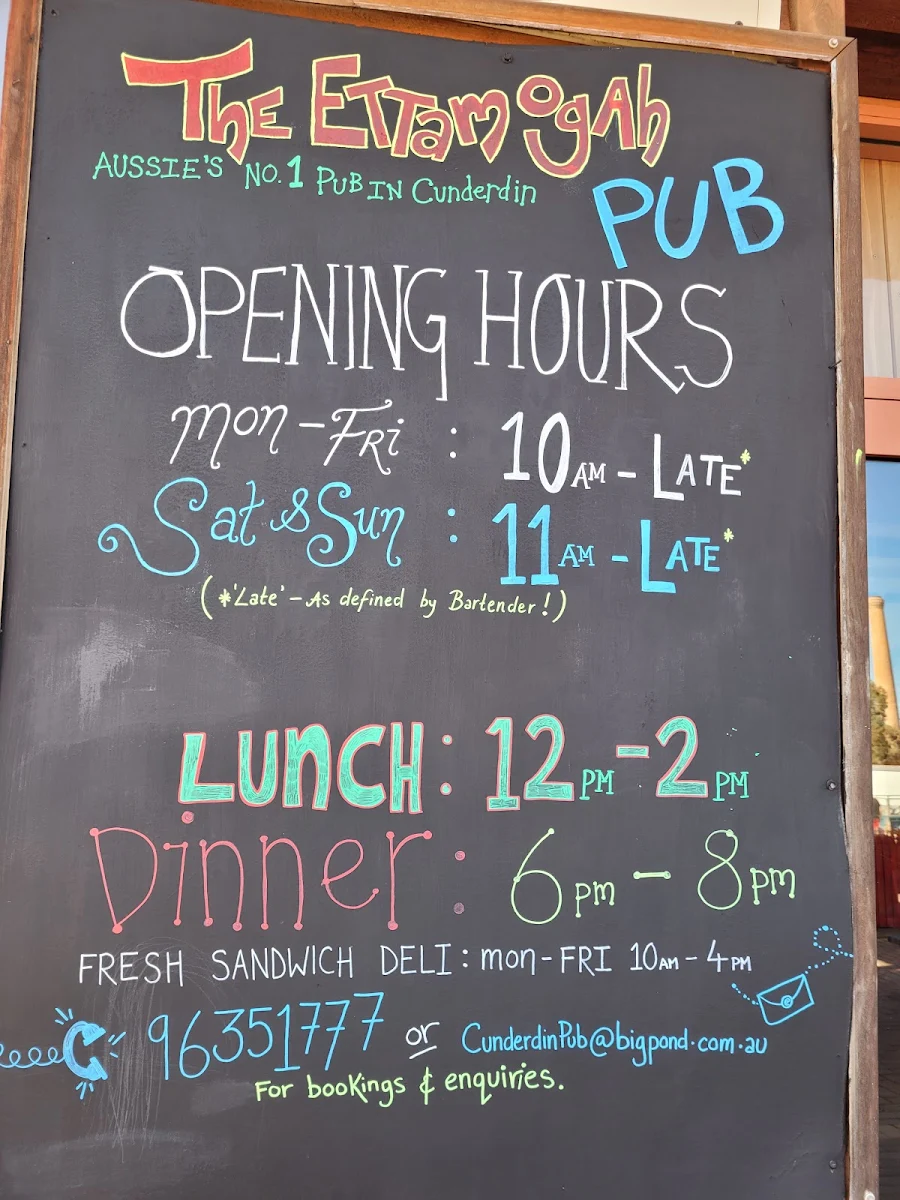 The Ettamogah
PUB
AUSSIE'S NO.1 PUB IN Cunderdin
OPENING HOURS
Mon - Fri : 10AM - LATE*
Sat & Sun : 11AM - LATE*
(*'Late' - As defined by Bartender!)
LUNCH: 12PM - 2PM
Dinner: 6pm - 8pm
FRESH SANDWICH DELI: mon - FRI 10AM - 4PM
96351777 or CunderdinPub@bigpond.com.au
For bookings & enquiries.